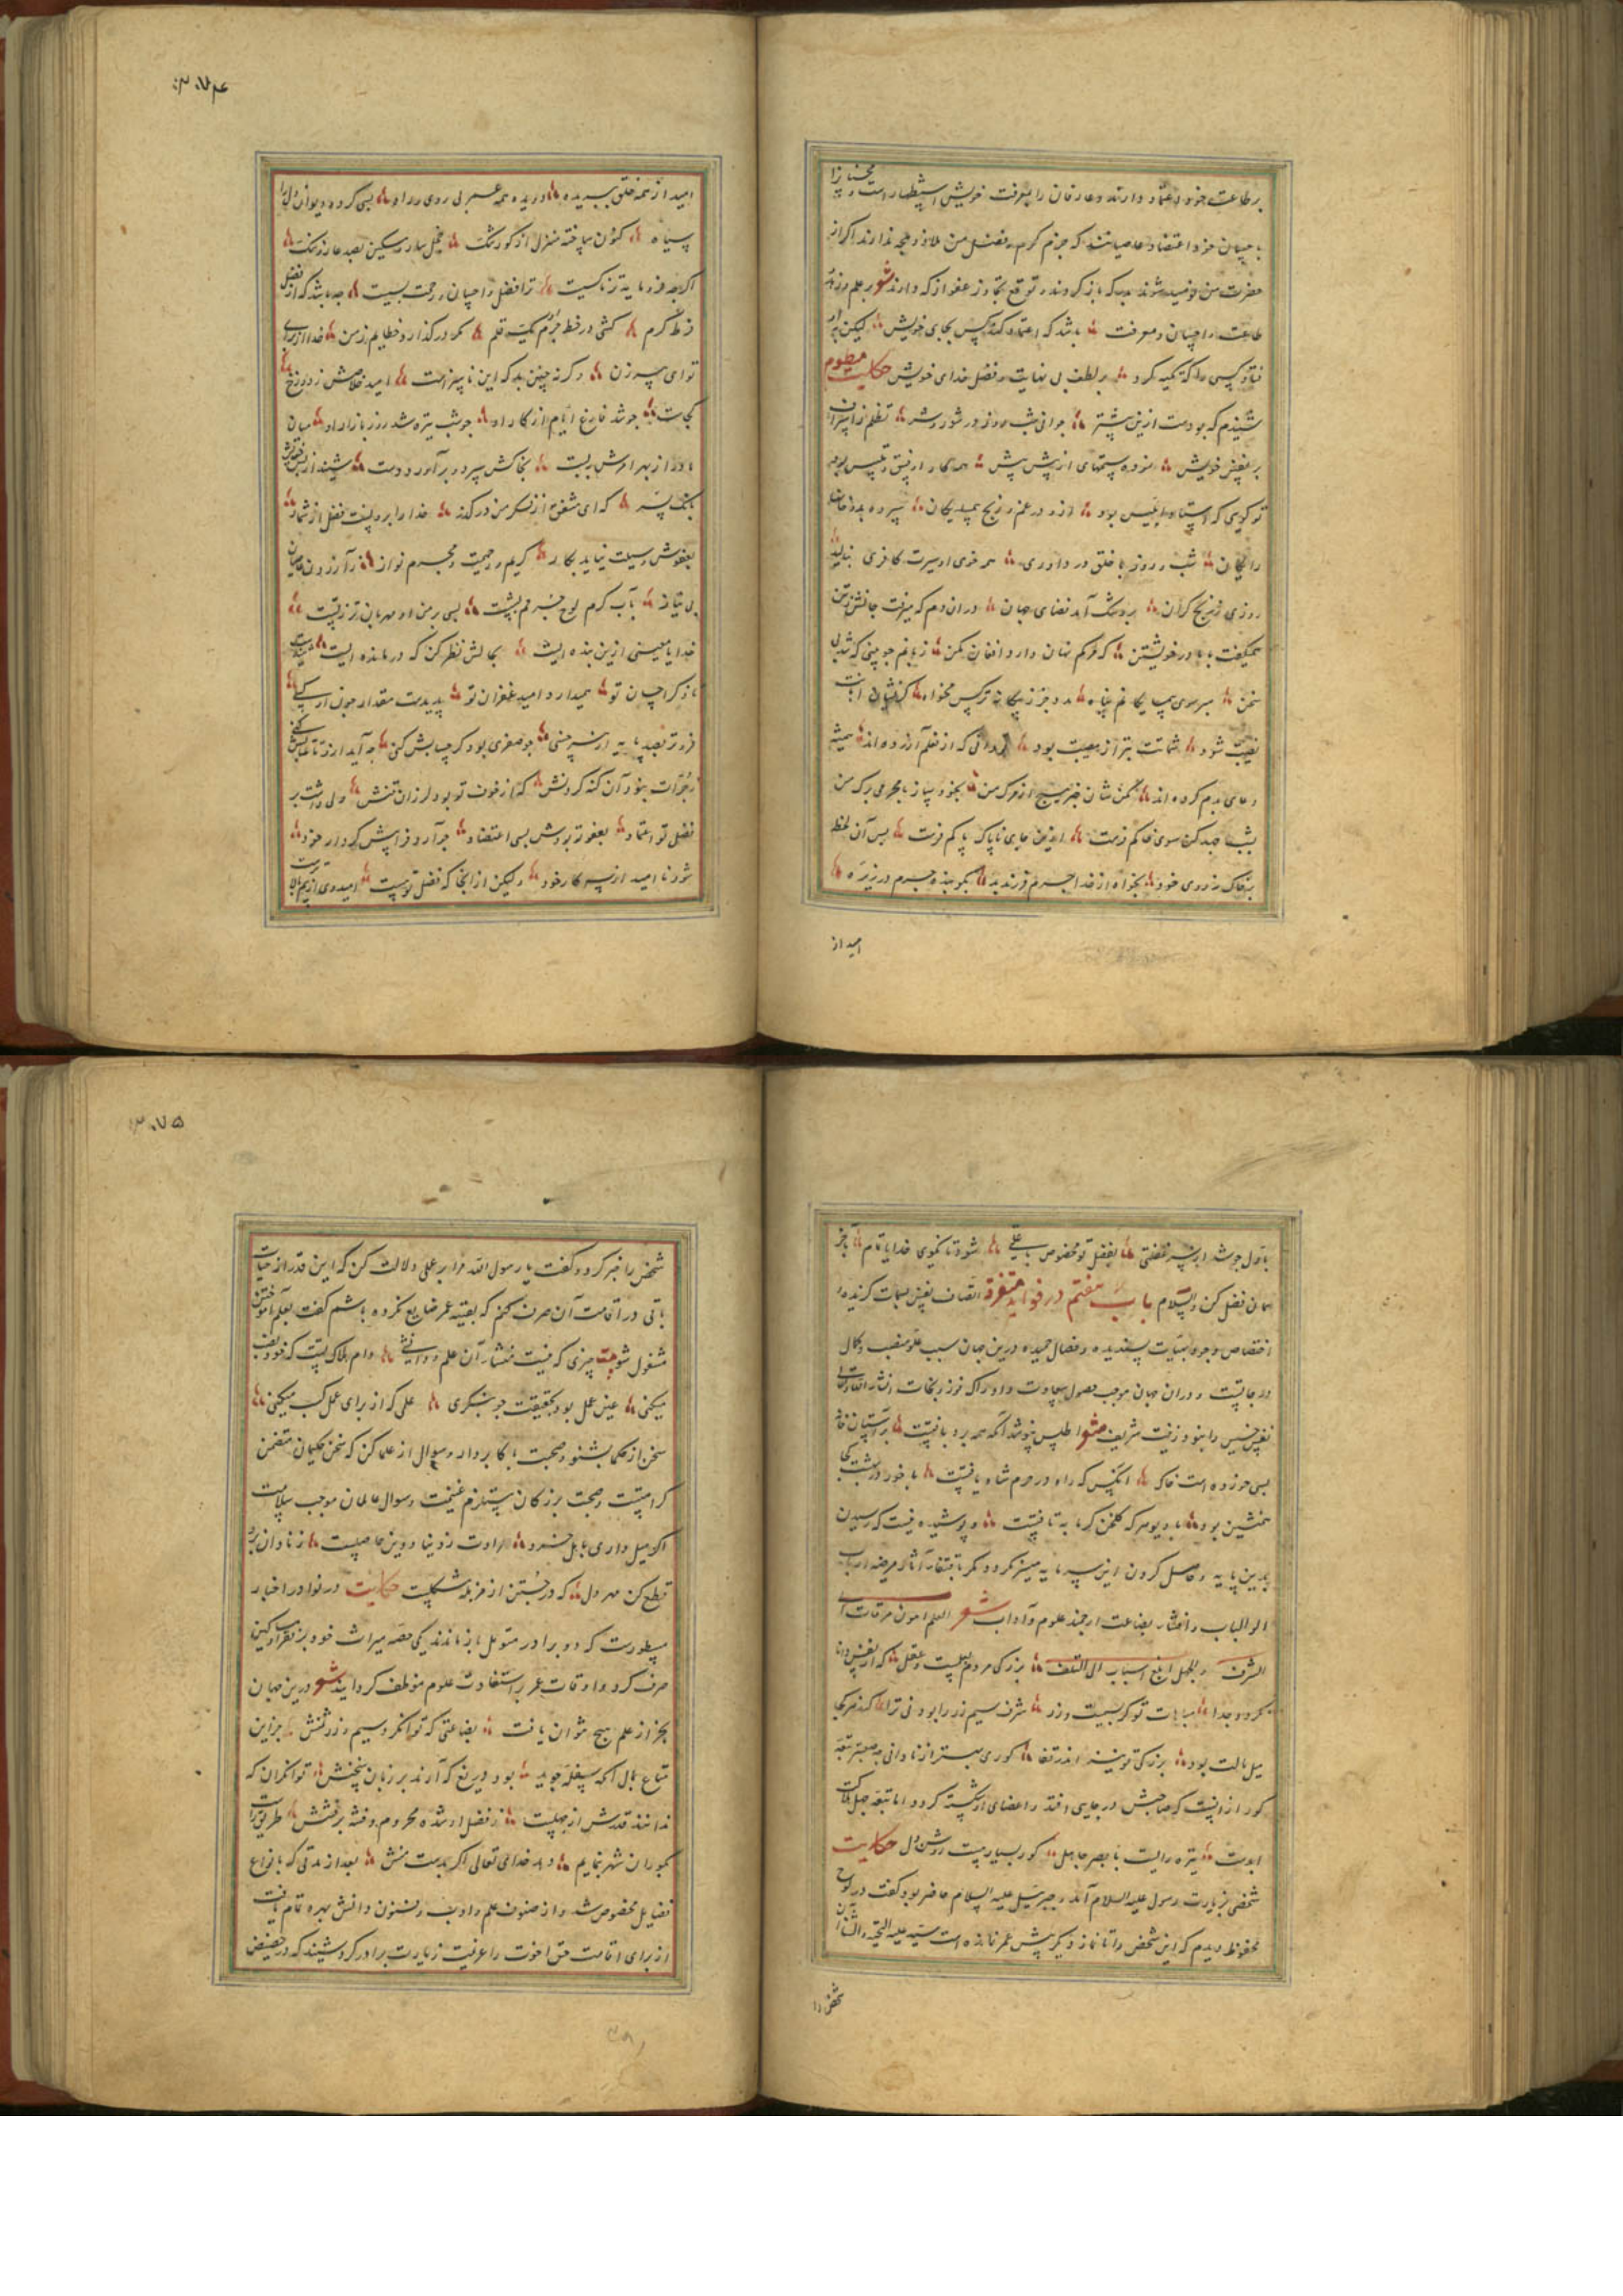 بر طاعت خود اعتماد دارند و عارفان را بمعرفت خویش استظهار است و محسنانرا
باحسان خود اعتضاد عاصیانند که جزم کرم و فضل من ملاذ و ملجا ندارند اگر از
حضرت من نومید شوند بکه باز کردند و توقع تجاوز عفو از که دارند شعر بر علم و زهد
طاعت و احسان و معرفت باشد که اعتماد کند کس بجای خویش لیکن
کسی را که تکیه کرد بر لطف بی نهایت و فضل خدای خویش حکایت منظوم
شنیدم که بودست ازین پیشتر جوانی شب و روز در شور و شر تظلم
بر نفس خویش نموده ستمهای از پیش بیش همه کار او فسق و تلبیس بود
تو گویی که استاد ابلیس بود ازو در غم و رنج همسایگان
رایگان شب و روز با خلق در داوری همه خوی او سیرت کافری
روزی ز رنج گران بروتنگ آمد فضای جهان در آن دم که میرفت جانش ز تن
همیگفت با مادر خویشتن که مرگم نهان دار و افغان مکن
سخن مبر سوی بیگانه پناه مدد جز ز بیگانه ترکس مخواه
نصیب شود شماتت بتر از مصیبت بود که از ظلم آزرده اند همیشه
دعای بدم کرده اند مکن شان خبر هیچ از مرگ من
بشب جهد کن سوی خاکم فرست ازین جای ناپاک پاکم فرست پس آن لحظه
بر خاک نه روی خود بخواه از خدا جرم فرزند بد بگو بنده مجرم
امید از
۳۰۷۴
امید از همه خلق ببریده دریده همه عمر بی روی و راه بسی کرده دیوان
سیاه کنون ساخته منزل از گور تنگ
اگرچه فرومایه تر ناکسیست ترا فضل و احسان و رحمت بسیست چه باشد که از فضل
فرط کرم کشی در خط جرم یک قلم گذار و خطایم ز من خدا از برای
توای پیرزن و کرنه چنین بد که این ناسزاست امید خلاصش ز دوزخ
کجاست چو شد فارغ ایام از کار او چو شب تیره شد روز بازار او میان
مادر از بهر امرش ببست بخاکش سپرد و برآورد دست شنید از
بانگ پسر که ای مشفق از فکر من درگذر خدا را برونست فضل از شمار
بعفوش وسیلت نیاید بکار کریم و رحیمست و مجرم نواز
بی نیاز بآب کرم لوح جرمم بشست بسی بر من او مهربان تر ز تست
خدایا معینی ازین بنده ایست بحالش نظر کن که درمانده ایست
باز کرا چنان تو همیدارد امید غفران تو پدیدست مقدار چون او کسی
فروتر بصد پایه از هر خسی چو صفری بود کر حسابش کنی چه آید ازو تا عتابش کنی
ز جرأت نبود آن گنه کردنش که از خوف تو بود لرزان تنش ولی داشت بر
فضل تو اعتماد بعفوت بودش بسی اعتضاد چو آرد فراپیش کردار خود
شود نا امید از سیه کار خود ولیکن از آنجا که فضل تو هست امیدوی از بیم
۳۰۷۵
باول چو شد از سر بفضل تو مخصوص بی علتی شود تا نکوی خدایا تمام بآخر
همان فضل کن والسلام باب هفتم در فواید متفرقه اتصاف نفس بسمات گزیده و
اختصاص وجود بهیئات پسندیده و خصال حمیده درین جهان سبب علو منصب و کمال
درجاتست و در آن جهان موجب حصول سعادت و ادراک فوز و نجات
نفس خسیس را نبود زینت شریف شعر اطلس نپوشد آنکه همه بوریا بافتست بر آستان خانه
بسی خورده است خاک آنکس که راه در حرم شاه یافتست با خود در بهشت کجا
همنشین بود با دیو هر که کلخن کرمابه تافتست و پوشیده نیست که رسیدن
بدین پایه و حاصل کردن این سرمایه میسر نگردد مگر باقتفاء آثار مرضیه ارباب
اولوالالباب و انتشار بضاعت ارجمند علوم و آداب شعر العلم اسمی مرقات الی
الشرف والجهل ابلغ اسباب الی التلف بزرگی مردم بعلمست و عقل که از نفس دانا
نگردد جدا مباهات تو گر بسیمست و زر شرف سیم و زر را بود نی ترا کند هر کجا
میل مالت بود بزرگی تو بیند اندر قفا کوری بهتر از نادانی چه
کور از آنست که صاحبش در جایی افتد و اعضای او شکسته گردد اما تبعه جهل هلاکت
ابدست تیره رایست با بصر جاهل کور بسیار هست روشن دل حکایت
شخصی بزیارت رسول علیه السلام آمد و جبرئیل علیه السلام حاضر بود و گفت در لوح
محفوظ دیدم که این شخص را تا نماز دیگر بیش عمر نمانده است سید علیه التحیه والثنا آن
شخص را
شخص را خبر کرد و گفت یا رسول الله مرا بر عملی دلالت کن که این قدر از حیات
باقی در اقامت آن صرف کنم که بقیه عمر ضایع نکرده باشم گفت بعلم آموختن
مشغول شو بیت چیزی که نیست منشأ آن علم و دام هلاک تست که خود نصب
میکنی عین عمل بود بحقیقت چو بنگری علمی که از برای عمل کسب میکنی
سخن از حکما بشنو و صحبت با کابر دار و سوال از علما کن که سخن حکیمان متضمن
کرامتست و صحبت بزرگان مستلزم غنیمت و سوال عالمان موجب سلامت
اگر میل داری باهل خرد مرادت ز دنیا و دین حاصلست ز نادان
قطع کن مهر دل که در جستن از مزبله مشکلست حکایت در نوادر اخبار
مسطورست که دو برادر متمول بازماندند یکی حصه میراث خود بر فقرا و مساکین
صرف کرد و اوقات عمر بر استفادت علوم موظف گردانید شعر درین جهان
بجز از علم هیچ نتوان یافت بضاعتی که توانگر و سیم و زرش جز این
متاع بمال آنکه سفله جوید بود دریغ که آرند بر زبان سخنش توانگران که
ندانند قدرش از جهلست ز فضل او شده محروم و فتنه بر فتنش طریق راست
بکوران شهر بنمایم دهد خدای تعالی اگر بدست منش بعد از مدتی که بانواع
فضایل مخصوص شد و از صنوف علم و ادب و فنون دانش بهره تمام یافت
از برای اقامت حق اخوت را عزیمت زیارت برادر کرد شنید که در حضیض